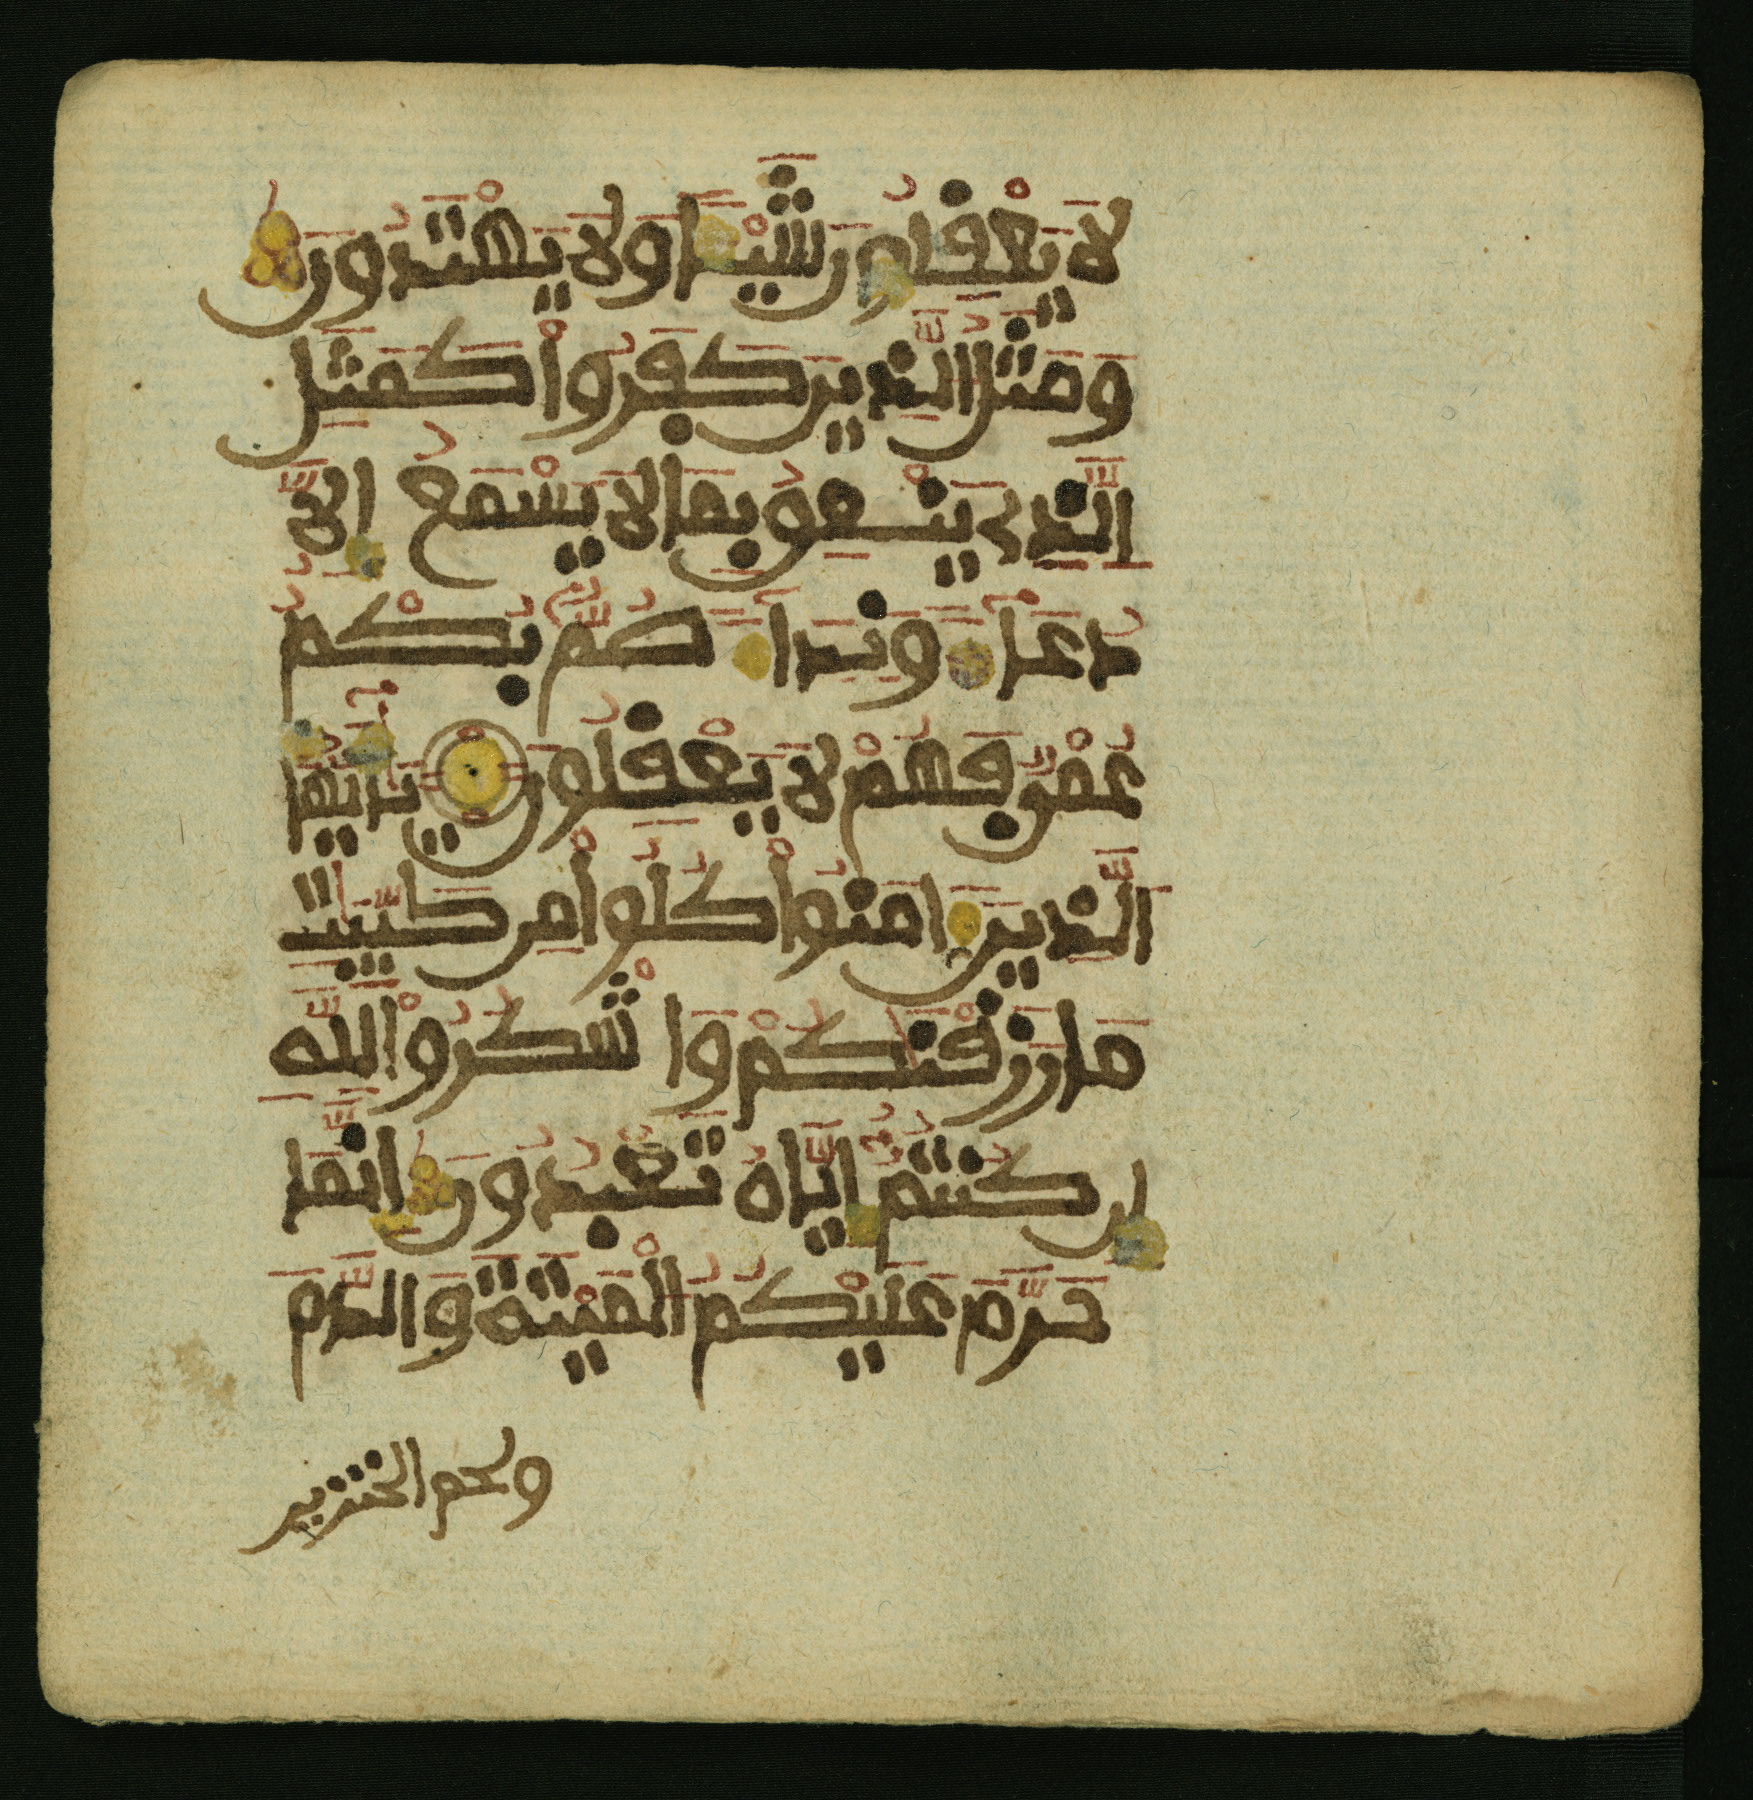 لَا يَعْقِلُونَ شَيْـًٔا وَلَا يَهْتَدُونَ
وَمَثَلُ الَّذِينَ كَفَرُواْ كَمَثَلِ
الَّذِي يَنْعِقُ بِمَا لَا يَسْمَعُ إِلَّا
دُعَآءً وَنِدَآءً صُمٌّ بُكْمٌ
عُمْيٌ فَهُمْ لَا يَعْقِلُونَ يَٰٓأَيُّهَا
الَّذِينَ ءَامَنُواْ كُلُواْ مِن طَيِّبَٰتِ
مَا رَزَقْنَٰكُمْ وَاشْكُرُواْ لِلَّهِ
إِن كُنتُمُۥٓ إِيَّاهُ تَعْبُدُونَ إِنَّمَا
حَرَّمَ عَلَيْكُمُ الْمَيْتَةَ وَالدَّمَ
ولحم الخنزير